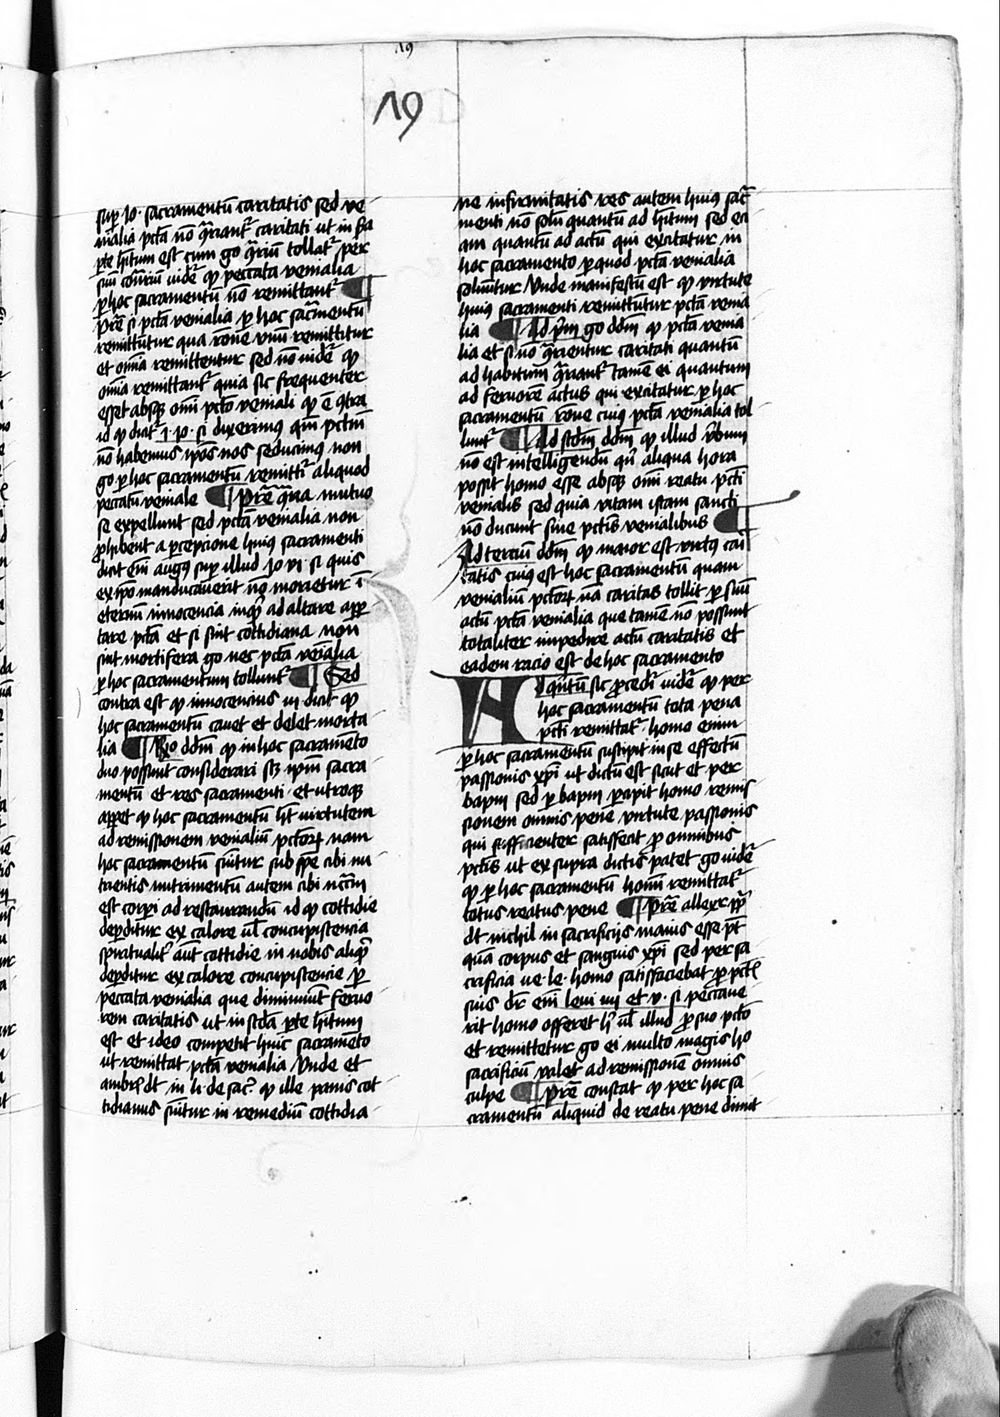 19
19
sup Io. sacramentū caritatis sed ve
nialia pctā nō ꝯriant᷑ caritati ut in sc̄da
pte h̄itum est cum go ꝯriū tollat᷑ per
suū cōtrariū uidet᷑ qꝫ peccata venialia
p hoc sacramentū nō remittant᷑ ¶
Pret̄ si pctā venialia p hoc sacr̄mentū
remittūtur qua rōne vnū remittitur
et omīa remittentur sed nō uidet᷑ qꝫ
omīa remittant᷑ quia sic frequenter
esset absqꝫ omī pctō veniali qꝫ ē ꝯtra
id qꝫ dicit᷑ 1. Io. si dixerimꝯ qm̄ pctm̄
nō habemus ip̄os nos seducimꝯ non
go p hoc sacramentū remittit᷑ aliquod
peccatū veniale ¶ Pret̄ ꝯtria mutuo
se expellunt sed pctā venialia non
ꝓhibent a pcepcione huiꝯ sacramenti
dicit em̄ augꝯ sup illud Io vi si quis
ex ip̄o manducauerit nō morietur ī
eternū innocencia inqͥt ad altare appor
tate pctā et si sint cottidiana non
sint mortifera go nec pctā venialia
p hoc sacramentum tollunt᷑ ¶ Sed
contra est qꝫ innocencius iii dicit qꝫ
hoc sacramentū cauet et delet morta
lia ¶ Rō dd̄m qꝫ in hoc sacramēto
duo possunt considerari scꝫ ip̄m sacra
mentū et res sacramenti et utroqꝫ
apparet qꝫ hoc sacramentū h̄et virtutem
ad remissionem venialiū pctoꝝ nam
hoc sacramentū sūitur sub spē cibi nu
trientis nutrimentū autem cibi nccm̄
est corpi ad restaurandū id qꝫ cottidie
depditur ex calore ul̄ concupistencia
spiritualit᷑ aūt cottidie in nobis aliqͥd
depditur ex calore concupistencie p
peccata venialia que diminuūt feruo
rem caritatis ut in sc̄da pte h̄itum
est et ideo competit huic sacramēto
ut remittat pctā venialia Vnde et
ambroꝯ dt̄ in li de sac̄r qꝫ iste panis cot
tidianus sūitur in remediū cottidia
ne infirmitatis res autem huiꝯ sac̄
menti nō solū quantū ad h̄itum sed eci
am quantū ad actū qui excitatur in
hoc sacramento p quod pctā venialia
soluūtur Vnde manifestū est qꝫ virtute
huiꝯ sacramenti remittūtur pctā venia
lia ¶ Ad pͥm go dd̄m qꝫ pctā venia
lia et si nō ꝯrientur caritati quantū
ad habitum ꝯriant᷑ tamē ei quantum
ad feruorē actus qui excitatur p hoc
sacramentū rōne cuiꝯ pctā venialia tol
lunt᷑ ¶ Ad scdm̄ dd̄m qꝫ illud vbum
nō est intelligendū qn̄ aliqua hora
possit homo esse absqꝫ omī reatu pcti
venialis sed quia vitam istam sancti
nō ducunt sine pctīs venialibus ¶
Ad terciū dd̄m qꝫ maior est virtꝯ cari
tatis cuiꝯ est hoc sacramentū quam
venialiū pctoꝝ na caritas tollit p suū
actū pctā venialia que tamē nō possunt
totaliter impedire actū caritatis et
eadem racio est de hoc sacramento
Ad qͥntū sic ꝓcedit᷑ uidet᷑ qꝫ per
hoc sacramentū tota pena
pcti remittat᷑ homo enim
p hoc sacramentū suscipit in se effectū
passionis xp̄i ut dictū est sicut et per
bapm̄ sed p bapm̄ pcipit homo remis
sionem omnis pene virtute passionis
qui sufficienter satisfecit ꝓ omnibus
pctīs ut ex supra dictis patet go uidet᷑
qꝫ p hoc sacramentū homī remittat᷑
totus reatus pene ¶ Pret̄ allexr pp̄
dt̄ nichil in sacrificijs maius esse pōt
quā corpus et sanguis xp̄i sed per sa
crificia ue. le. homo satisfaciebat ꝓ pctīs
suis dr̄ em̄ leui iiij et v. si peccaue
rit homo offeret h̄ ul̄ illud ꝓ suo pctō
et remittetur go ei multo magis ho
sacrificiū valet ad remissionē omnis
culpe ¶ Pret̄ constat qꝫ per hoc sa
cramentū aliquid de reatu pene dimit